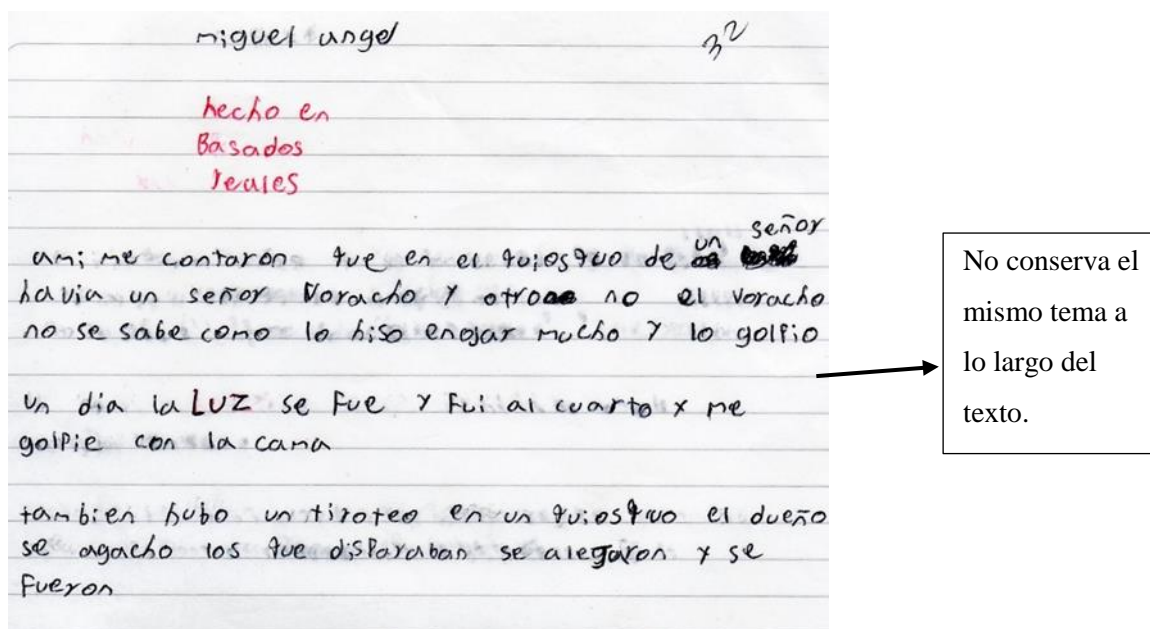 miguel angel
32
hecho en
Basados
reales
un señor
ami me contaron que en el quiosquo de
havia un señor Voracho y otro no el voracho
no se sabe como lo hiso enojar mucho y lo golpio
un dia la LUZ se fue y fui al cuarto y me
golpie con la cama
tambien hubo un tiroteo en un quiosquo el dueño
se agacho los que disparaban se alegaron y se
fueron
No conserva el
mismo tema a
lo largo del
texto.